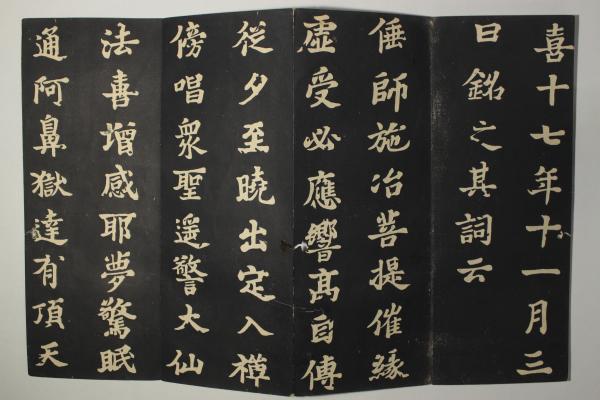 喜十七年十一月三
日銘之其詞云
倕師施冶菩提催緣
虛受必應響高自傳
從夕至曉出定入禪
傍唱衆聖遥警大仙
法喜增感耶夢驚眠
通阿鼻獄達有頂天